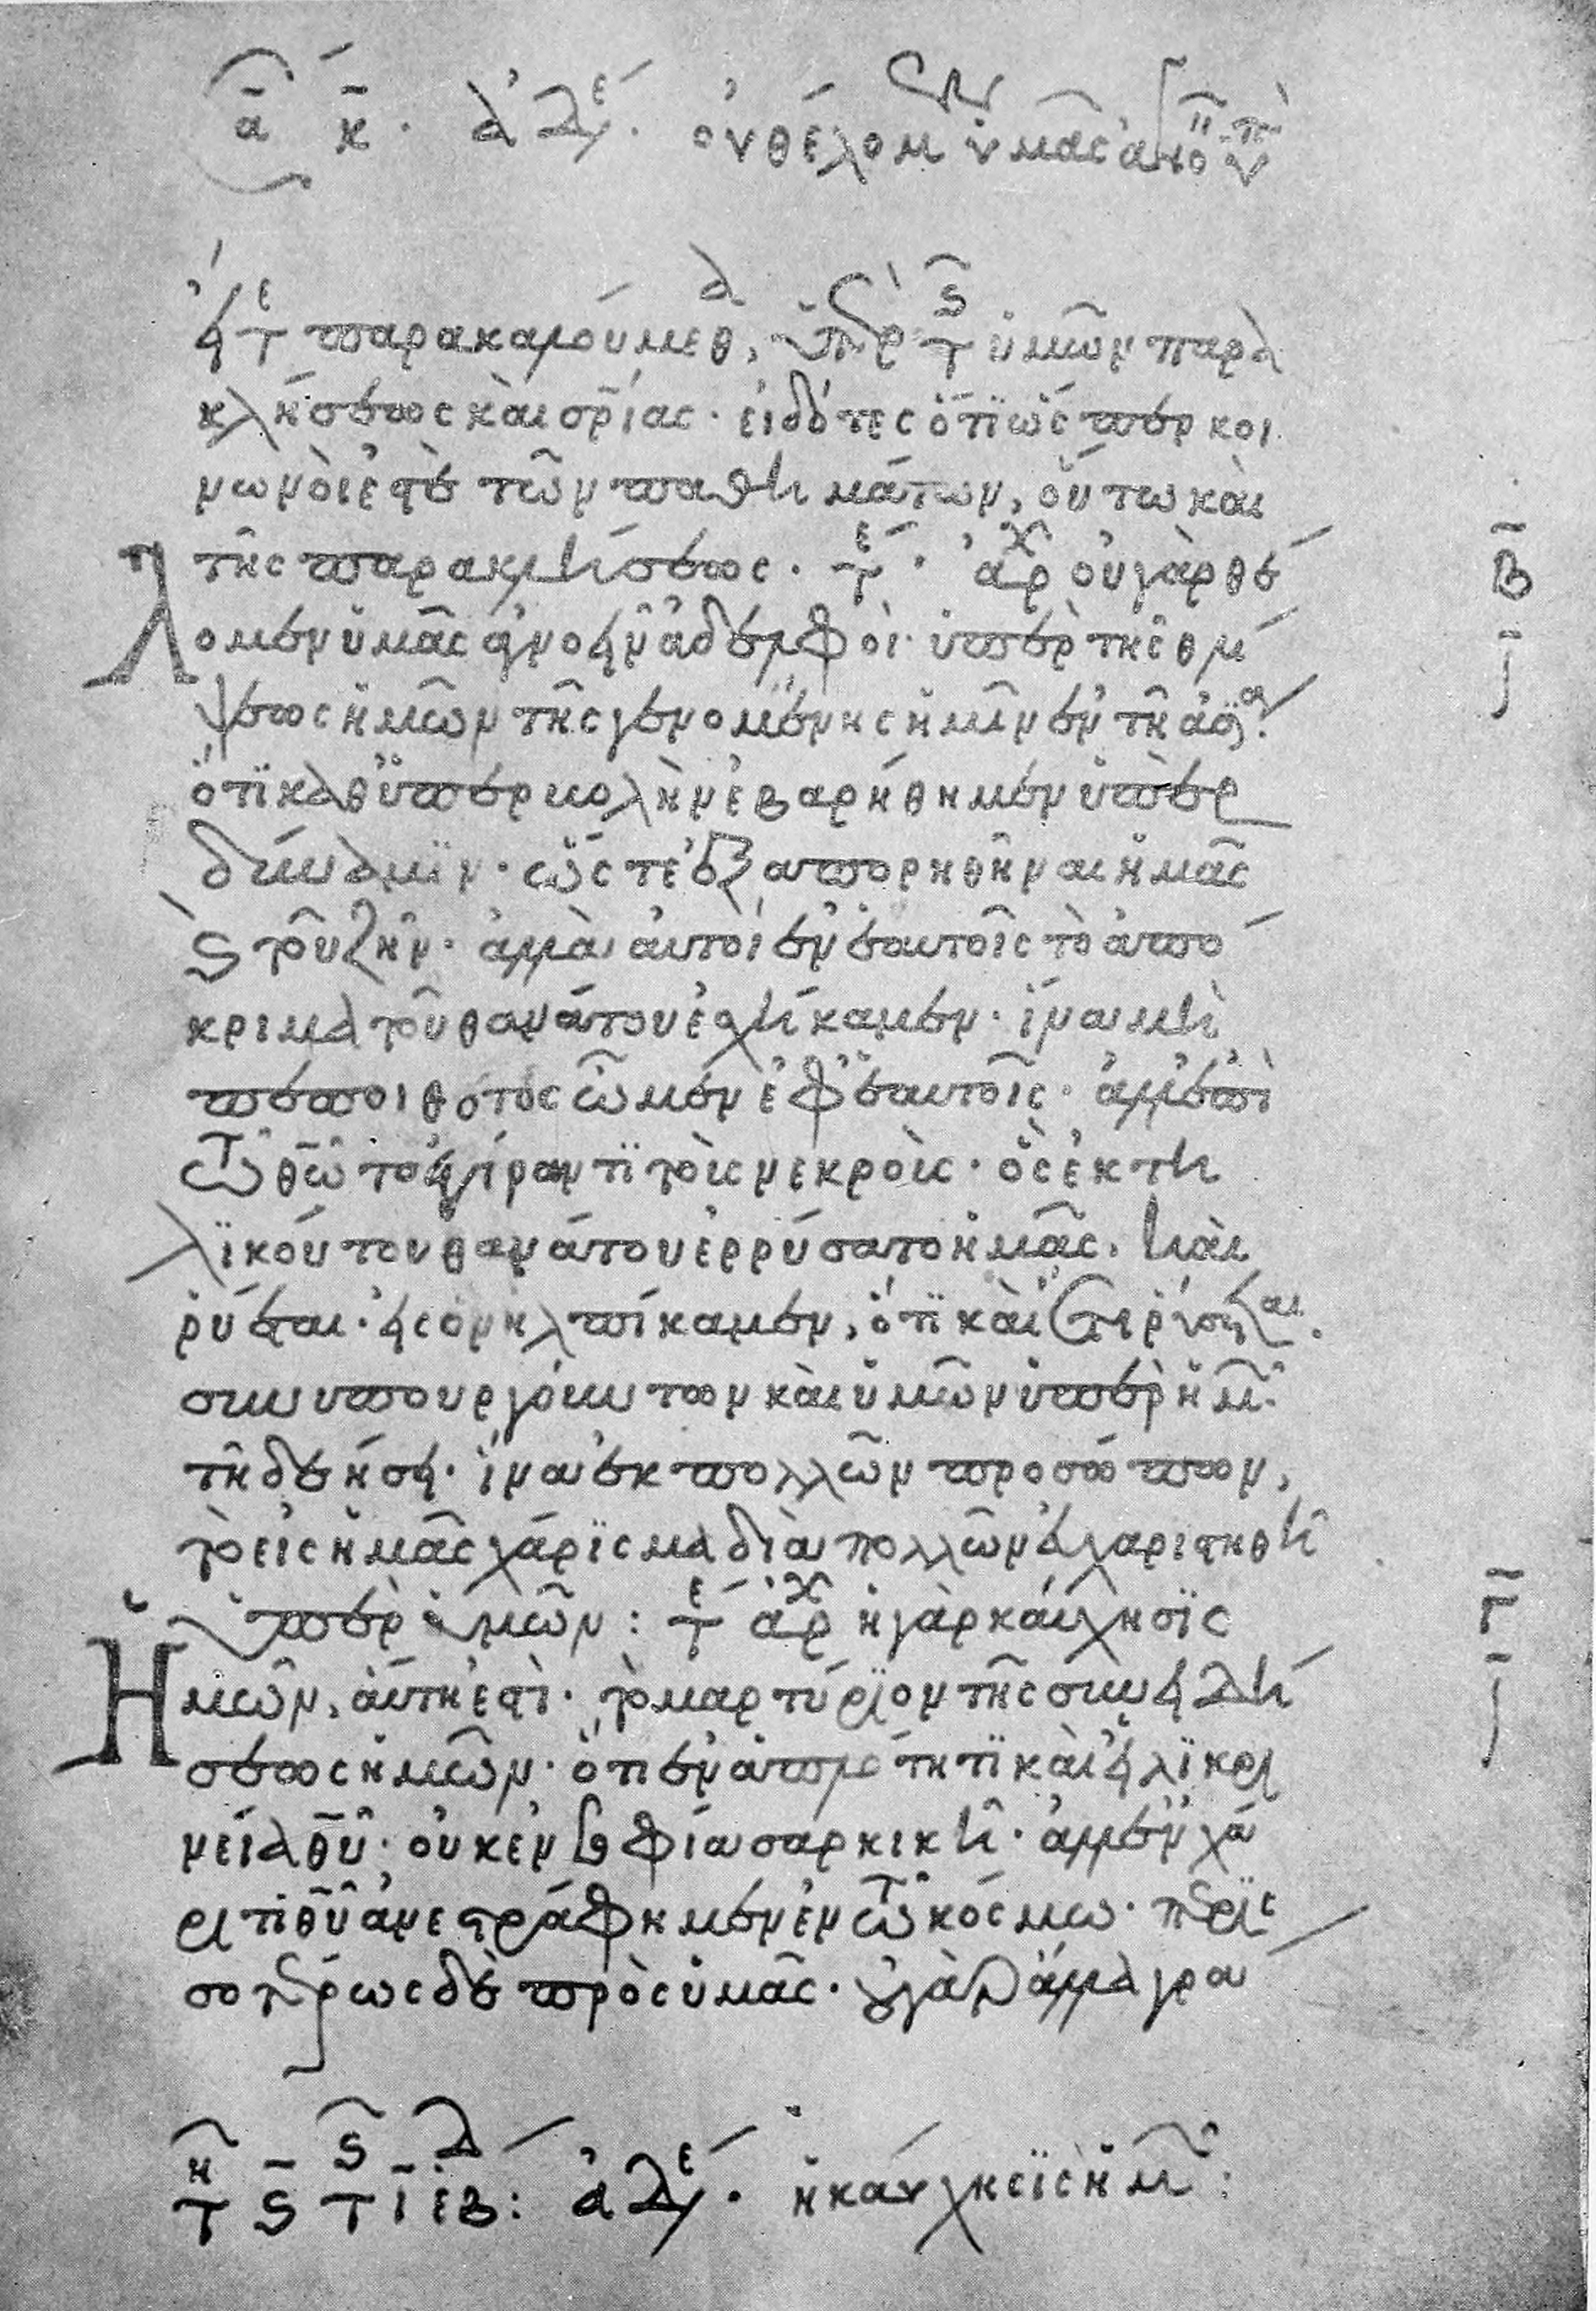 κ. ἀδε. οὐ θέλομεν ὑμᾶς ἀγνοεῖν
εἴτε παρακαλούμεθα, ὑπὲρ τῆς ὑμῶν παρα
κλήσεως καὶ σρίας· εἰδότες ὅτι ὥσπερ κοι
νωνοί ἐστὲ τῶν παθημάτων, οὕτω καὶ
τῆς παρακλήσεως· τε· ἀρχ οὐ γὰρ θέ
λομεν ὑμᾶς ἀγνοεῖν ἀδελφοί· ὑπὲρ τῆς θλί
ψεως ἡμῶν τῆς γενομένης ἡμῖν ἐν τῇ ἀσία·
ὅτι καθ ὑπερβολὴν ἐβαρήθημεν ὑπὲρ
δύναμιν· ὥστε ἐξαπορηθῆναι ἡμᾶς
καὶ τοῦ ζῆν· ἀλλὰ αὐτοὶ ἐν ἑαυτοῖς τὸ ἀπό
κριμα τοῦ θανάτου ἐσχήκαμεν· ἵνα μὴ
πεποιθότες ὦμεν ἐφ ἑαυτοῖς· ἀλλ ἐπὶ
τῷ θῶ τῷ ἐγείραντι τοὺς νεκρούς· ὃς ἐκ τη
λικούτου θανάτου ἐρρύσατο ἡμᾶς. καὶ
ῥύεται· εἰς ὃν ἠλπίκαμεν, ὅτι καὶ ἔτι ῥύσεται.
συνυπουργούντων καὶ ὑμῶν ὑπὲρ ἡμῶν
τῇ δεήσει· ἵνα ἐκ πολλῶν προσώπων,
τὸ εἰς ἡμᾶς χάρισμα διὰ πολλῶν εὐχαριστηθῇ
ὑπὲρ ἡμῶν: τε ἀρχ ἡ γὰρ καύχησις
ἡμῶν, αὕτη ἐστὶ· τὸ μαρτύριον τῆς συνειδή
σεως ἡμῶν· ὅτι ἐν ἁπλότητι καὶ εἰλικρι
νείᾳ θῦ· οὐκ ἐν σοφίᾳ σαρκικῇ· ἀλλ ἐν χά
ριτι θῦ ἀνεστράφημεν ἐν τῷ κόσμω· περισ
σοτέρως δὲ πρὸς ὑμᾶς· οὐ γὰρ ἄλλα γρά
ἀδε. ἡ καύχησις ἡμῶν:
Β
Γ